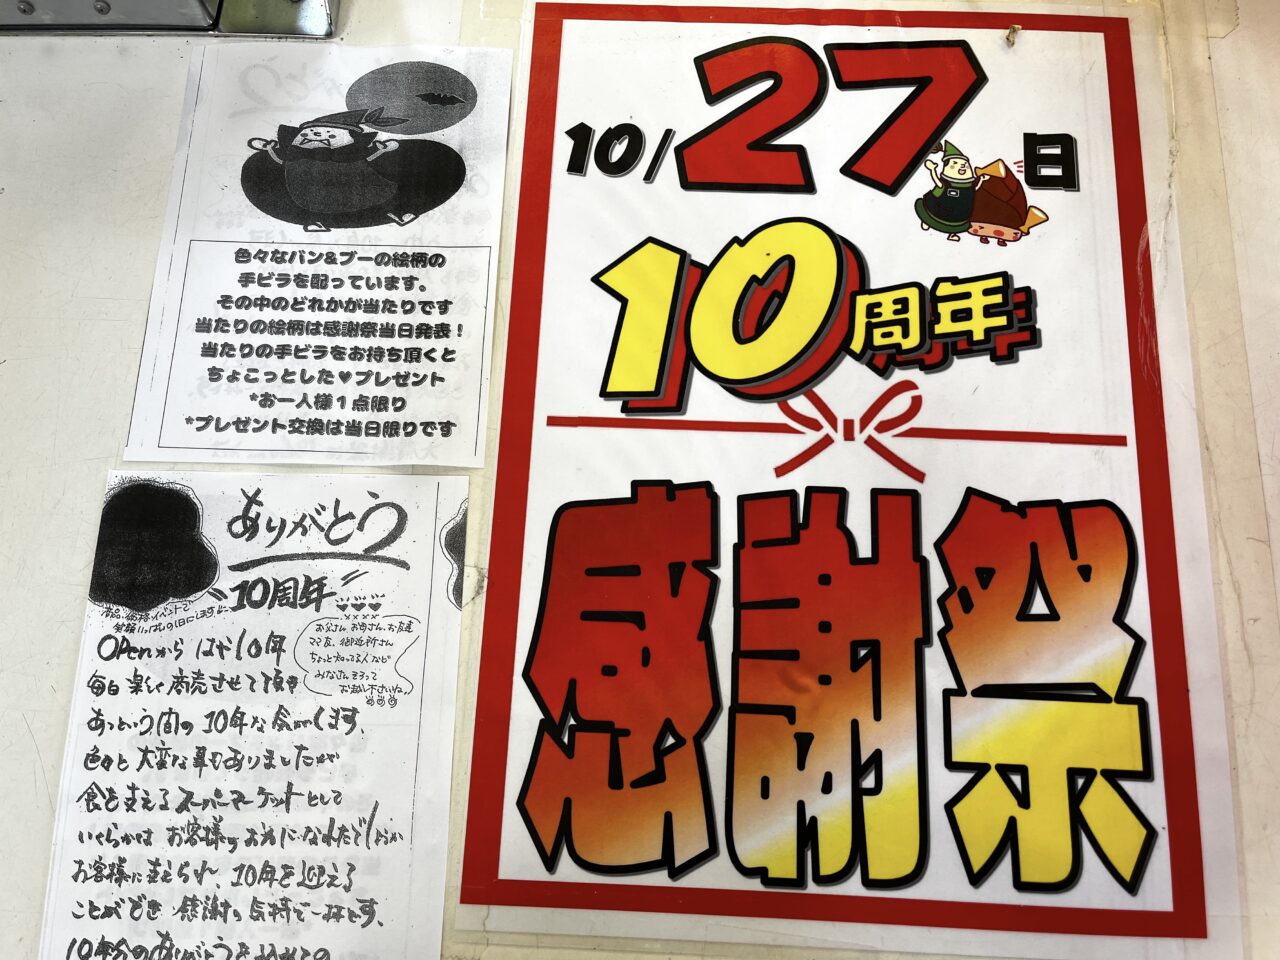 10/27日
10周年
感謝祭
色々なバン&ブーの絵柄の
手ビラを配っています。
その中のどれかが当たりです
当たりの絵柄は感謝祭当日発表！
当たりの手ビラをお持ち頂くと
ちょこっとした♥プレゼント
*お一人様１点限り
*プレゼント交換は当日限りです
ありがとう
10周年
OPenから はや10年
毎日 楽しく 商売させて頂き
あっという間の 10年な気がします、
色々と 大変な事もありましたが
食を支える スーパーマーケットとして
いくらかは お客様の お力に なれたでしょうか
お客様に支えられ、10年を迎える
ことができ 感謝の気持で一杯です、
10年分のありがとうを込めての
お父さん、お母さん、お友達
ママ友、御近所さん
ちょっと知ってる人など
みなさん そろって
お越し下さいね